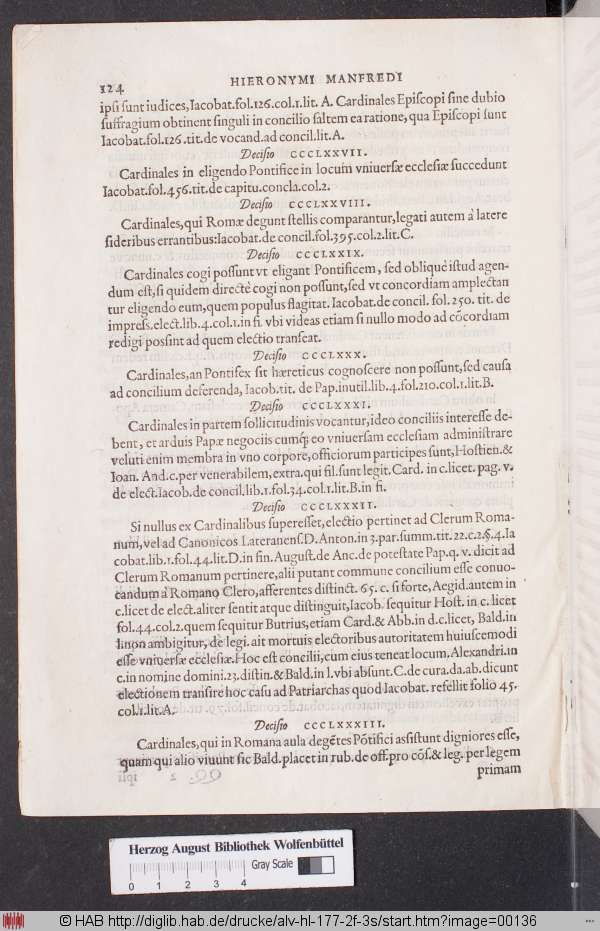 124
HIERONYMI MANFREDI
ipſi ſunt iudices, Iacobat.fol.126.col.1.lit. A. Cardinales Epiſcopi ſine dubio
ſuffragium obtinent ſinguli in concilio ſaltem ea ratione, qua Epiſcopi ſunt
Iacobat.fol.126.tit.de vocand.ad concil.lit.A.
Deciſio CCCLXXVII.
Cardinales in eligendo Pontifice in locum vniuerſæ eccleſiæ ſuccedunt
Iacobat.fol.456.tit.de capitu.concla.col.2.
Deciſio CCCLXXVIII.
Cardinales,qui Romæ degunt ſtellis comparantur,legati autem à latere
ſideribus errantibus:Iacobat.de concil.fol.395.col.2.lit.C.
Deciſio CCCLXXIX.
Cardinales cogi poſſunt vt eligant Pontificem, ſed obliquè iſtud agen-
dum eſt,ſi quidem directè cogi non poſſunt,ſed vt concordiam amplectan
tur eligendo eum,quem populus flagitat. Iacobat.de concil. fol. 250. tit. de
impreſs.elect.lib.4.col.1.in fi. vbi videas etiam ſi nullo modo ad cõcordiam
redigi poſſint ad quem electio tranſeat.
Deciſio CCCLXXX.
Cardinales,an Pontifex ſit hæreticus cognoſcere non poſſunt,ſed cauſa
ad concilium deferenda, Iacob.tit. de Pap.inutil.lib.4.fol.210.col.1.lit.B.
Deciſio CCCLXXXI.
Cardinales in partem ſollicitudinis vocantur,ideo conciliis intereſſe de-
bent, et arduis Papæ negociis cumq; eo vniuerſam eccleſiam adminiſtrare
veluti enim membra in vno corpore,officiorum participes ſunt,Hoſtien.&
Ioan. And.c.per venerabilem,extra.qui fil.ſunt legit. Card. in c.licet. pag. v.
de elect.Iacob.de concil.lib.1.fol.34.col.1.lit.B.in fi.
Deciſio CCCLXXXII.
Si nullus ex Cardinalibus ſupereſſet,electio pertinet ad Clerum Roma-
num,vel ad Canonicos Lateranenſ.D.Anton.in 3.par.ſumm.tit.22.c.2.§.4.Ia
cobat.lib.1.fol.44.lit.D.in fin.Auguſt.de Anc.de poteſtate Pap.q. v. dicit ad
Clerum Romanum pertinere,alii putant commune concilium eſſe conuo-
candum à Romano Clero,afferentes diſtinct. 65. c. ſi forte,Aegid.autem in
c.licet de elect.aliter ſentit atque diſtinguit,Iacob. ſequitur Hoſt. in c. licet
fol.44.col.2.quem ſequitur Butrius,etiam Card.& Abb.in d.c.licet, Bald.in
l.non ambigitur, de legi. ait mortuis electoribus autoritatem huiuſcemodi
eſſe vniuerſæ eccleſiæ.Hoc eſt concilii,cum eius teneat locum. Alexandri.in
c.in nomine domini.23.diſtin.& Bald.in l.vbi abſunt.C.de cura.da.ab.dicunt
electionem tranſire hoc caſu ad Patriarchas quod Iacobat. refellit folio 45.
col.1.lit.A.
Deciſio CCCLXXXIII.
Cardinales,qui in Romana aula degẽtes Põtifici aſſiſtunt digniores eſſe,
quam qui alio viuunt ſic Bald.placet in rub. de off.pro cõſ.& leg. per legem
primam
Herzog August Bibliothek Wolfenbüttel
Gray Scale
0 1 2 3 4
© HAB http://diglib.hab.de/drucke/alv-hl-177-2f-3s/start.htm?image=00136